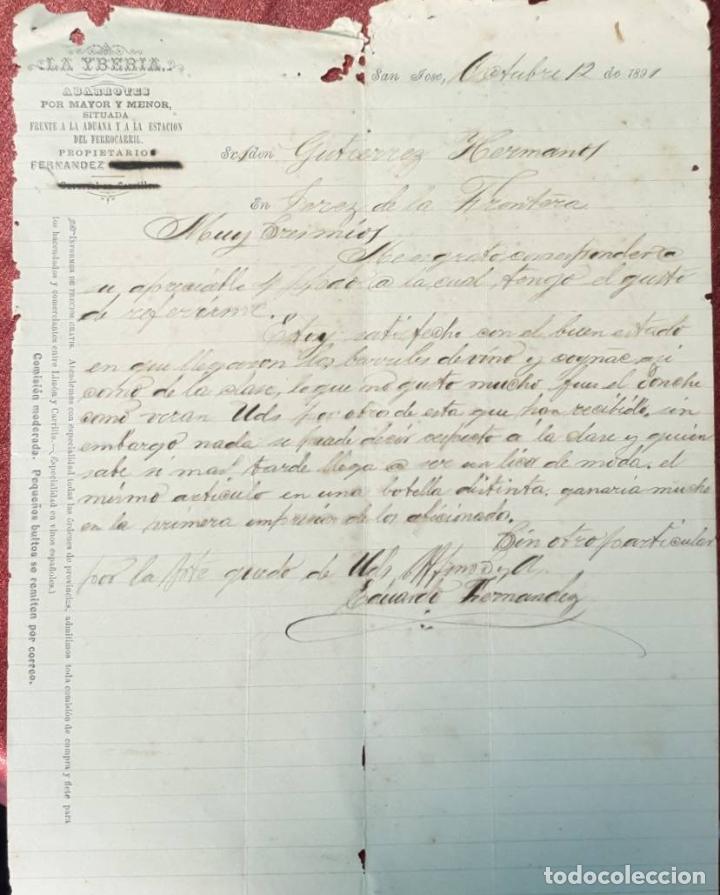 LA YBERIA.
ABARROTES
POR MAYOR Y MENOR,
SITUADA
FRENTE A LA ADUANA Y A LA ESTACION
DEL FERROCARRIL.
PROPIETARIO
FERNANDEZ
San Jose, Octubre 12 de 1891
Gutierrez Hermanos
En Jerez de la Frontera
Muy Sres mios
Me es grato corresponder a
su apreciable a la cual tengo el gusto
de referirme.
Estoy satisfecho con el buen estado
en que llegaron los barriles de vino y cognac asi
como de la clase, lo que no gusto mucho fue el Ponche
como veran Uds por otro de esta que han recibido, sin
embargo nada se puede decir respecto á la clase y quien
sabe si mas tarde llega a ser un licor de moda. el
mismo articulo en una botella distinta. ganaria mucho
en la primera impresion de los aficionados.
Sin otro particular
por la pte quedo de Uds,
Eduardo Fernandez
INFORMES DE PRECIOS GRATIS. Atendemos con especialidad todas las órdenes de provincias, admitimos toda comisión de compra y flete para
los hacendados y comerciantes entre Limón y Carrillo.—(Especialidad en vinos españoles.)
Comisión moderada. Pequeños bultos se remiten por correo.
todocoleccion.net